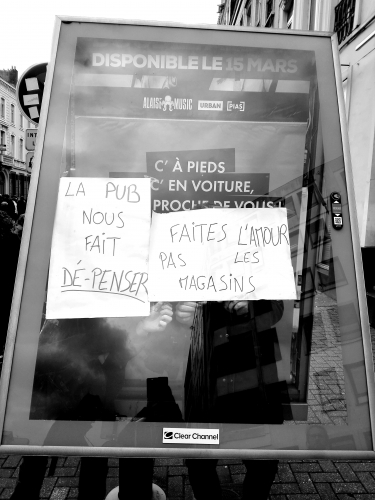 DISPONIBLE LE 15 MARS
ALAISE MUSIC URBAN [PIAS]
C' À PIEDS
C' EN VOITURE,
PROCHE DE VOUS !
LA PUB
NOUS
FAIT
DÉ-PENSER
FAITES L'AMOUR
PAS LES
MAGASINS
Clear Channel